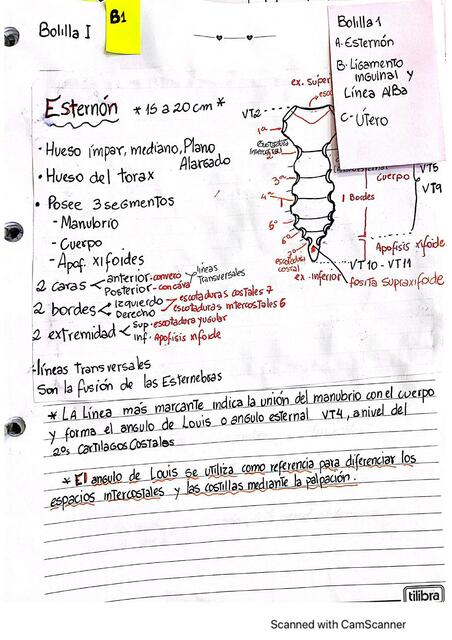 Bolilla I
B1
Bolilla 1
A. Esternón
B. Ligamento inguinal y Línea Alba
C- Útero
Esternón * 15 a 20 cm *
· Hueso impar, mediano, Plano Alargado
· Hueso del torax
· Posee 3 segmentos
- Manubrio
- Cuerpo
- Apof. xifoides
2 caras < anterior - convexo
Posterior - concava
líneas transversales
2 bordes < Izquierdo
Derecho
escotaduras costales 7
escotaduras intercostales 6
2 extremidad < Sup - escotadura yugular
Inf. Apofisis xifoide
-líneas transversales
Son la fusión de las Esternebras
ex. Super
VT2
1ª
Escotadura intercostal
2
3ª
4ª
5º
6º
7º
escotadura costal
ex. Inferior
Cuerpo
1 Bordes
VT5
VT9
Apofisis xifoide
VT10 - VT11
fosita supraxifoide
* La Línea más marcante indica la unión del manubrio con el cuerpo
y forma el angulo de Louis o angulo esternal VT4, a nivel del
2os cartilagos costales
* El angulo de Louis se utiliza como referencia para diferenciar los
espacios intercostales y las costillas mediante la palpación.
tilibra
Scanned with CamScanner